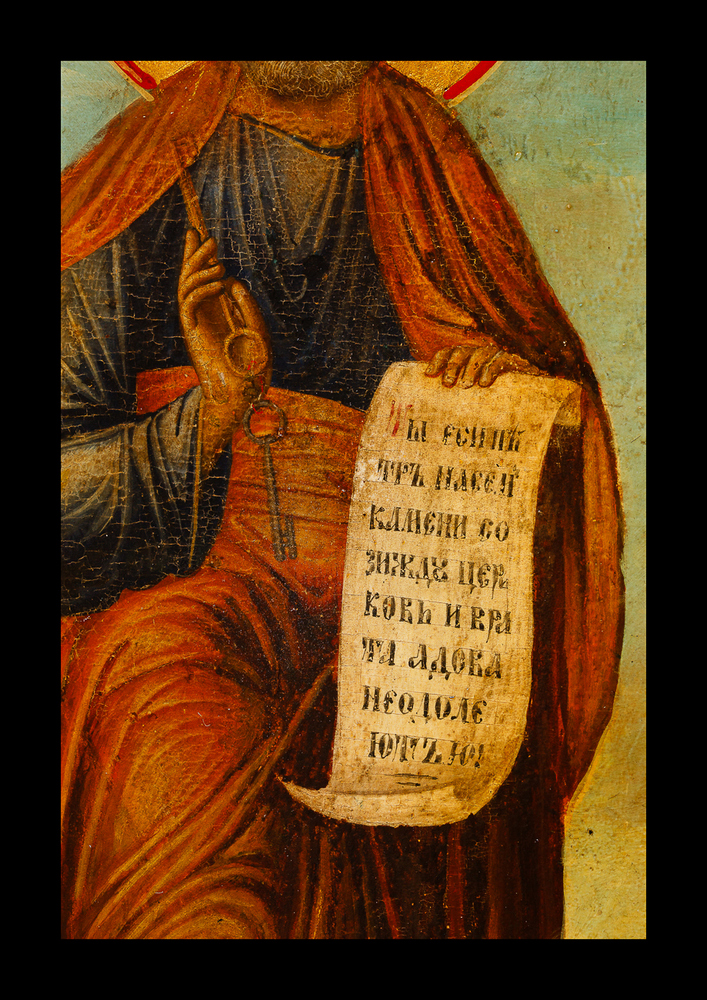 Ты еси пе
тръ насем
камени со
зижду цер
ковь и вра
та адова
неодоле
ютъ ю!